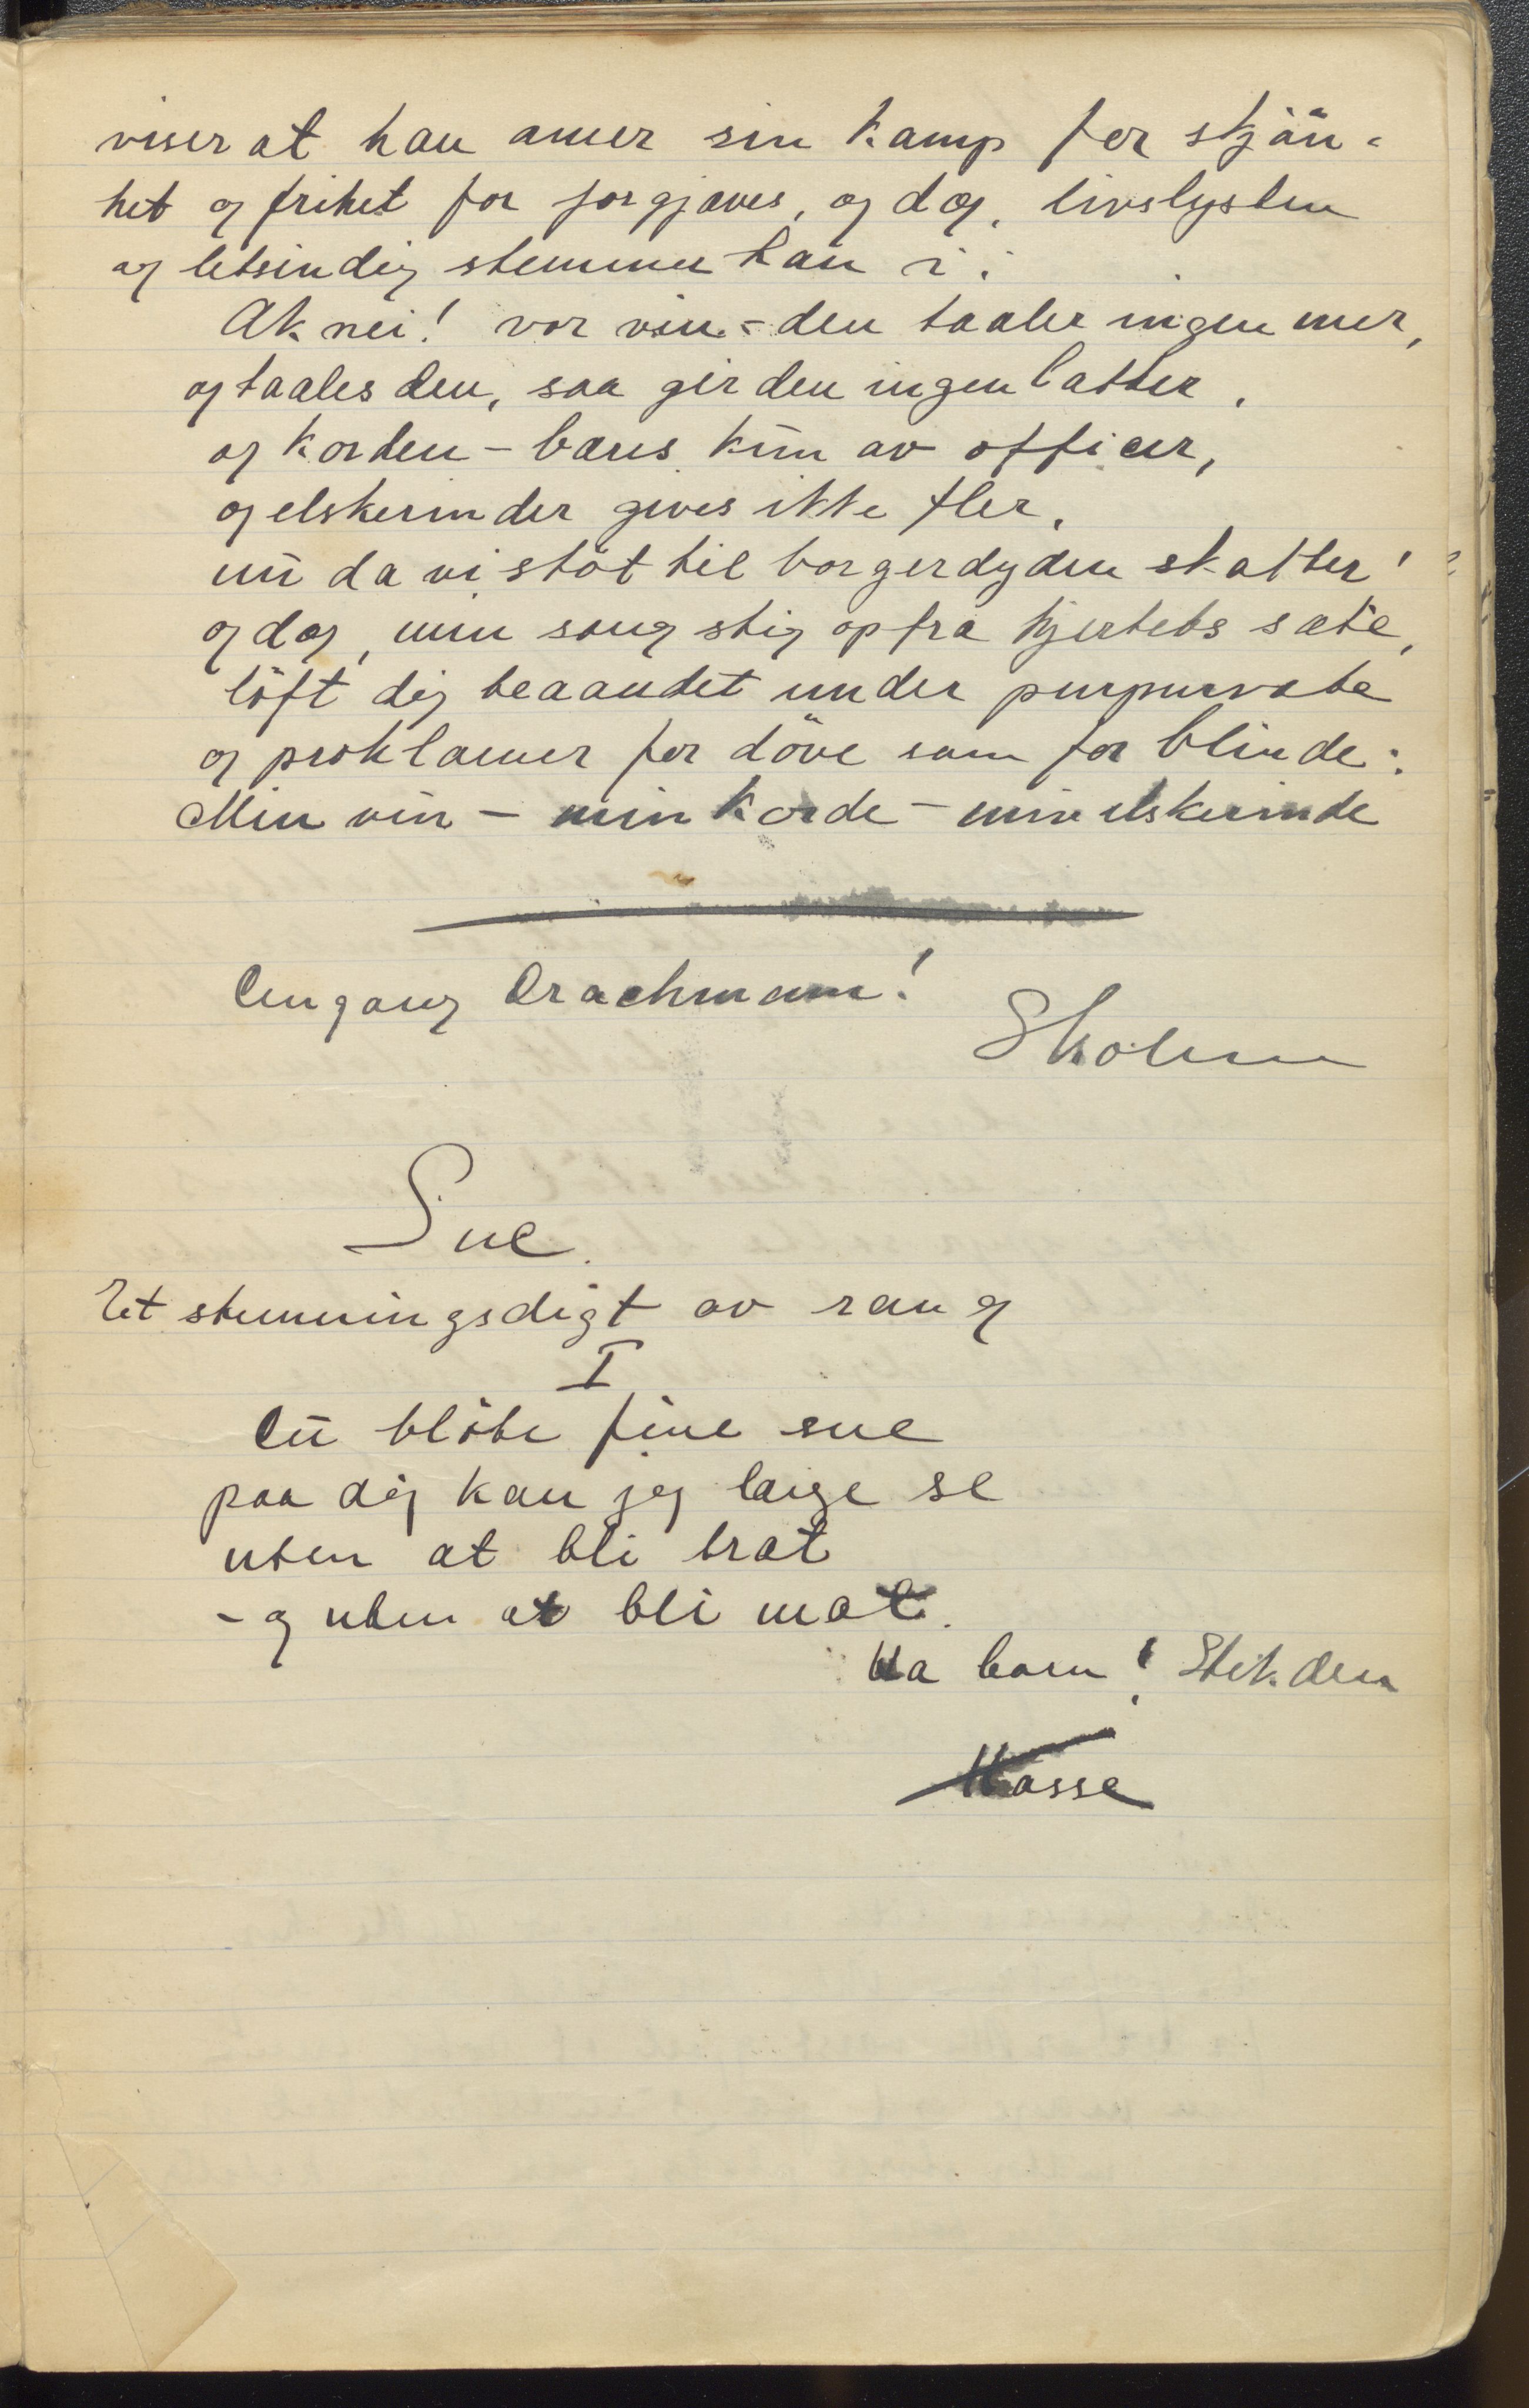 viser at han aner sin kamp for skjön-
het og frihet for forgjæves, og dog, livslysten
og letsindig stemmer han i:
Ak nei! vor vin - den taaler ingen mer,
og taales den, saa gir den ingen latter,
og korden - bæres kun av officer,
og elskerinder gives ikke fler,
nu da vi støt til borgerdyden skatter!
og dog, min sang stig op fra hjertets sæte,
löft dig beaandet under purpurvæte
og proklamer for döve som for blinde:
Min vin - min korde - min elskerinde
Engang Drachmann!
Skolem
Sne.
Et stemningsdigt av rang
I
Du blöte fine sne
paa dig kan jeg længe se
uten at bli brat
- og uten at bli mat.
Ha barn! Stik den
Hasse